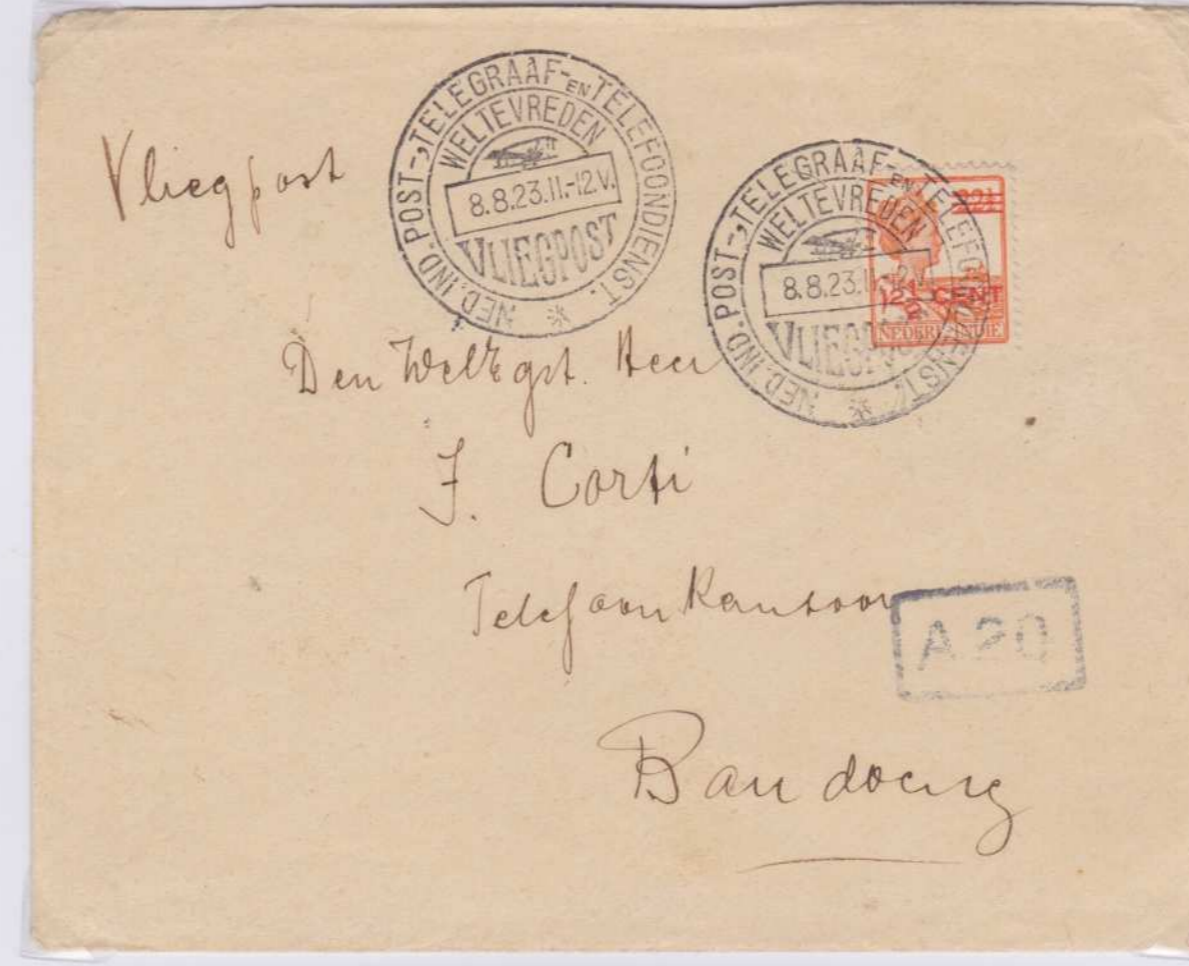 Vliegpost
NED. IND. POST-, TELEGRAAF- EN TELEFOONDIENST.
WELTEVREDEN
8.8.23.11.-12.V.
VLIEGPOST
NED. IND. POST-, TELEGRAAF- EN TELEFOONDIENST.
WELTEVREDEN
8.8.23.11.-12.V.
VLIEGPOST
22½
12½ CENT
NEDERL. INDIE
Den WelEgst. Heer
J. Corti
Telefoonkantoor
A20
Bandoeng